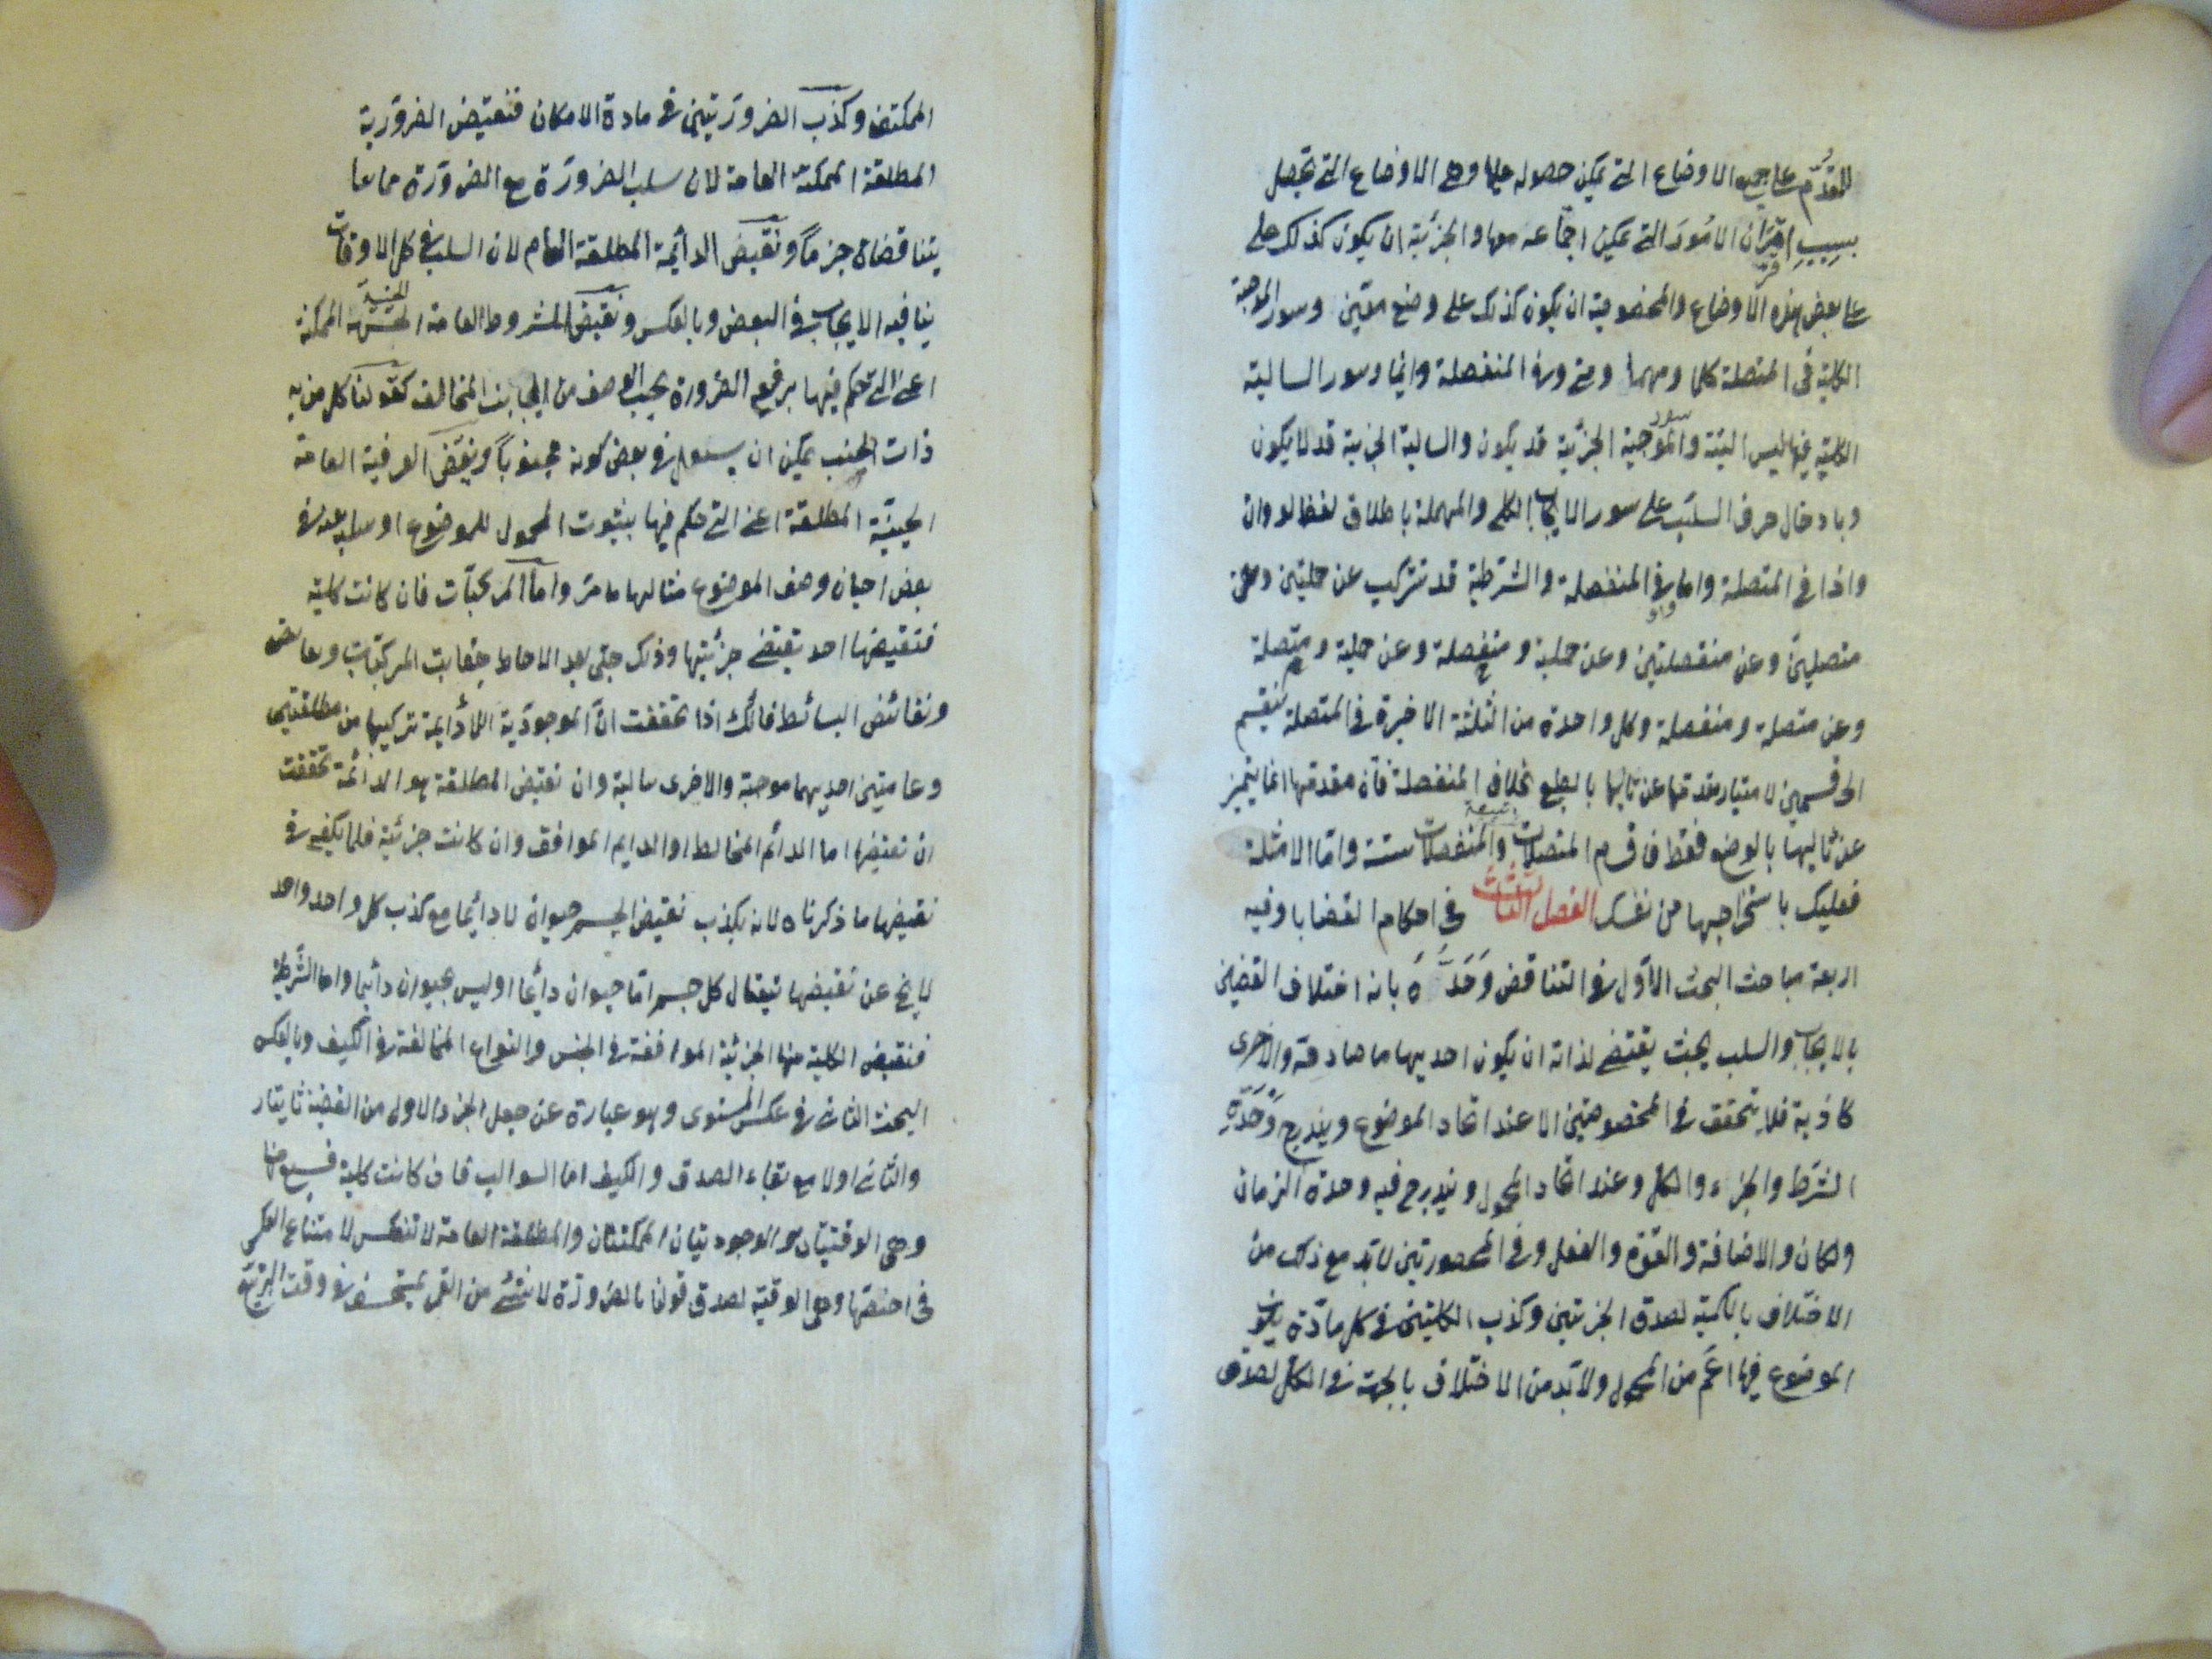 للمقدم على جميع الاوضاع التى يمكن حصوله عليها وهى الاوضاع التى تحصل
بسبب اقتران الامور التى يمكن اجتماعه معها والجزئية ان يكون كذلك على
على بعض هذه الاوضاع والمخصوصة ان يكون كذلك على وضع معين وسور الموجبة
الكلية فى المتصلة كلما ومهما ومتى وفى المنفصلة دائما وسور السالبة
الكلية فيهما ليس البتة وسور الموجبة الجزئية قد يكون والسالبة الجزئية قد لا يكون
وبادخال حرف السلب على سور الايجاب الكلى والمهملة باطلاق لفظ لو وان
واذا فى المتصلة واما فى المنفصلة والشرطية قد تتركب عن حمليتين وعن
متصلتين وعن منفصلتين وعن حملية ومنفصلة وعن حملية ومتصلة
وعن متصلة ومنفصلة وكل واحدة من الثلثة الاخيرة فى المتصلة ينقسم
الى قسمين لامتياز مقدمها عن تاليها بالطبع بخلاف المنفصلة فان مقدمها انما يتميز
عن تاليها بالوضع فقط فاقسام المتصلات تسعة والمنفصلات ستة واما الامثلة
فعليك باستخراجها من نفسك الفصل الثالث فى احكام القضايا وفيه
اربعة مباحث البحث الاول فى التناقض وحدوه بانه اختلاف القضيتين
بالايجاب والسلب بحيث يقتضى لذاته ان يكون احديهما صادقة والاخرى
كاذبة فلا يتحقق فى المخصوصتين الا عند اتحاد الموضوع ويندرج وحدة
الشرط والجزء والكل وعند اتحاد المحمول ويندرج فيه وحدة الزمان
والمكان والاضافة والقوة والفعل وفى المحصورتين لابد مع ذلك من
الاختلاف بالكمية لصدق الجزئيتين وكذب الكليتين فى كل مادة يكون
الموضوع فيها اعم من المحمول ولابد من الاختلاف بالجهة فى الكل لصدق
الممكنتين وكذب الضرورتين فى مادة الامكان فنقيض الضرورية
المطلقة الممكنة العامة لان سلب الضرورة مع الضرورة مما
يتناقضان جزما ونقيض الدائمة المطلقة العامة لان السلب فى كل الاوقات
ينافيه الايجاب فى البعض وبالعكس ونقيض المشروطة العامة الحينية الممكنة
اعنى التى حكم فيها برفع الضرورة بحسب الوصف من الجانب المخالف كقولنا كل من به
ذات الجنب يمكن ان يسعل فى بعض كونه مجنوبا ونقيض العرفية العامة
الحينية المطلقة اعنى التى حكم فيها بثبوت المحمول للموضوع او سلبه عنه فى
بعض احيان وصف الموضوع مثالها ما مر واما المركبات فان كانت كلية
فنقيضها احد نقيضى جزئيتها وذلك جلى بعد الاحاطة بحقايق المركبات
ونقائض البسائط فانك اذا تحققت ان الوجودية اللادائمة تركيبها من مطلقتين
وعامتين احديهما موجبة والاخرى سالبة وان نقيض المطلقة هو الدائمة تحققت
ان نقيضها اما الدائم المخالط او الدايم الموافق وان كانت جزئية فلا يكفى فى
نقيضها ما ذكرناه لانه يكذب نقيض الجسم حيوان لا دائما مع كذب كل واحد واحد
لا يخ عن نقيضها فيقال كل جسم اما حيوان دائما او ليس بحيوان دائما واما الشرطية
فنقيض الكلية منها الجزئية الموافقة فى الجنس والنوع المخالفة فى الكيف وبالعكس
البحث الثانى فى عكس المستوى وهو عبارة عن جعل الجزء الاول من القضية ثانيا
والثانى اولا مع بقاء الصدق والكيف اما السوالب فان كانت كلية فسبع منها
وهى الوقتيتان والوجوديتان والممكنتان والمطلقة العامة لا تنعكس لامتناع العكس
فى اخصها وهى الوقتية لصدق قولنا بالضرورة لا شئ من القمر بمنخسف فى وقت التربيع